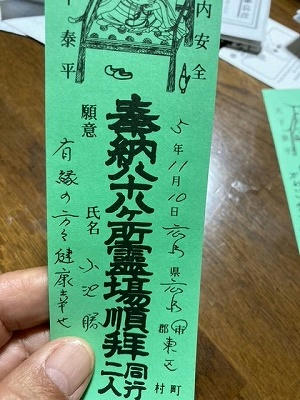 内安全
5年11月10日 広島県広島市郡東区町村
奉納八十八ヶ所霊場順拝同行二人
下泰平
氏名 小池勝
願意
有縁の方々健康幸せ